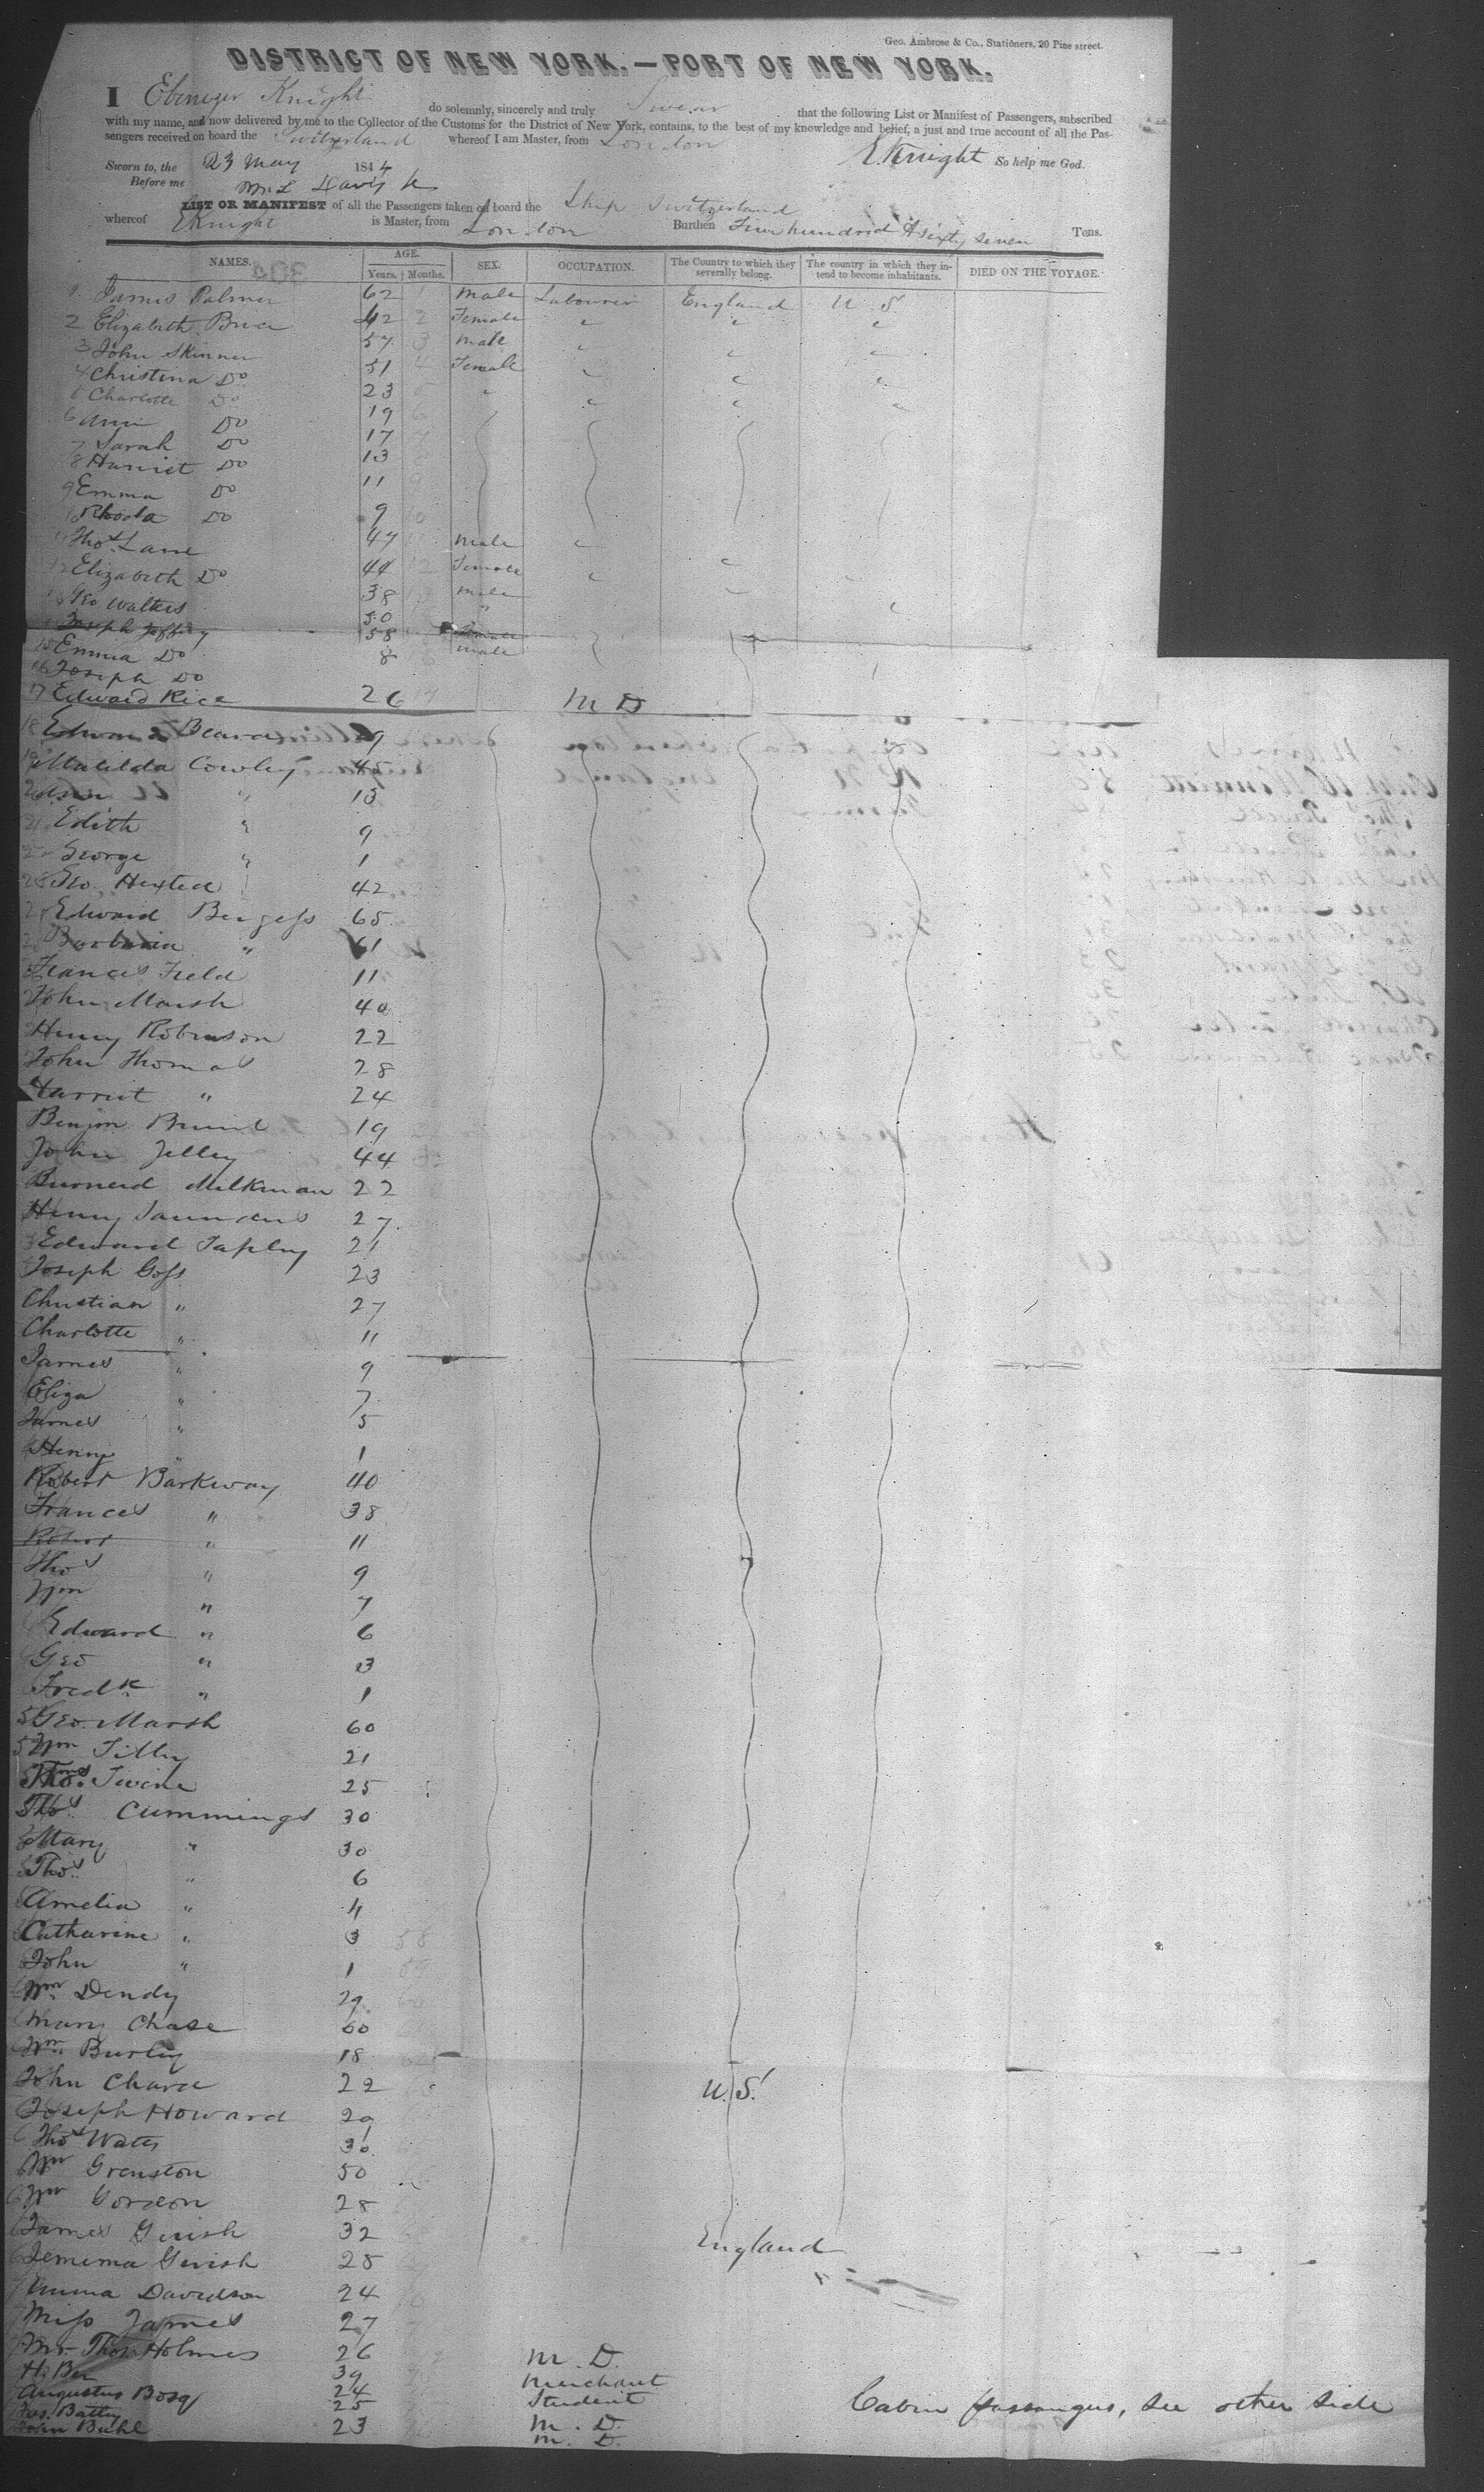 Geo. Ambrose & Co., Stationers, 20 Pine street.
DISTRICT OF NEW YORK.—PORT OF NEW YORK.
I Ebenezer Knight do solemnly, sincerely and truly Swear that the following List or Manifest of Passengers, subscribed
with my name, and now delivered by me to the Collector of the Customs for the District of New York, contains, to the best of my knowledge and belief, a just and true account of all the Pas-
sengers received on board the Switzerland whereof I am Master, from London
EKnight So help me God.
Sworn to, the 23 May 1844
Before me
LIST OR MANIFEST of all the Passengers taken on board the Ship Switzerland
whereof EKnight is Master, from London Burthen Four hundred & sixty seven Tons.
NAMES. AGE. SEX. OCCUPATION. The Country to which they severally belong. The country in which they intend to become inhabitants. DIED ON THE VOYAGE.
Years. Months.
1 James Palmer 62 Male Labourer England U S
2 Elizabeth 42 2 Female "
3 John Skinner 57 3 Male
4 Christina Do 51 4 Female
5 Charlotte Do 23 5 "
6 Ann Do 19
7 Sarah Do 17
8 Harriet Do 13
9 Emma Do 11
10 Rhoda Do 9
11 Thos Lane 47 Male
12 Elizabeth Do 44 Female
13 Geo Walters 38 Male
14 Joseph 50 "
15 Emma Do 58 Female
16 Joseph Do 8 Male
17 Edward Rice 26 M D
18 Beard 9
19 Matilda Cowley 45
20 Ann " 13
21 Edith " 9
22 George " 1
23 Geo. Hexted 42
24 Edward Burgess 65
25 " 61
Frances Field 11
John Marsh 40
Henry Robinson 22
John Thomas 28
Harriet " 24
Benjm 19
John Jelley 44
Milkman 22
Henry Saunders 27
Edward Tapley 21
Joseph Goss 23
Christian " 27
Charlotte " 11
James " 9
Eliza " 7
James " 5
Henry " 1
Robert Barkway 40
Frances " 38
Robert " 11
Thos " 9
Wm " 7
Edward " 6
Geo " 3
Fredk " 1
Geo. Marsh 60
Wm Tilly 21
25
Thos Cummings 30
Mary " 30
Thos " 6
Amelia " 4
Catharine " 3
John " 1
Wm Dendy 29
Mary Chase 60
Wm Burley 18
John Chard 22 U.S.
Joseph Howard 29
Thos Waters 30
Wm Grenston 50
Wm Gordon 28
James Gerish 32
Jemima Gerish 28 England
Emma Davidson 24
Miss James 27
Mr. Thos. Holmes 26 M. D.
H. Ben 39 Merchant
Augustus 24 Student
Jas. Batty 25 M. D.
John Buhl 23 M. D.
Cabin passengers, see other side